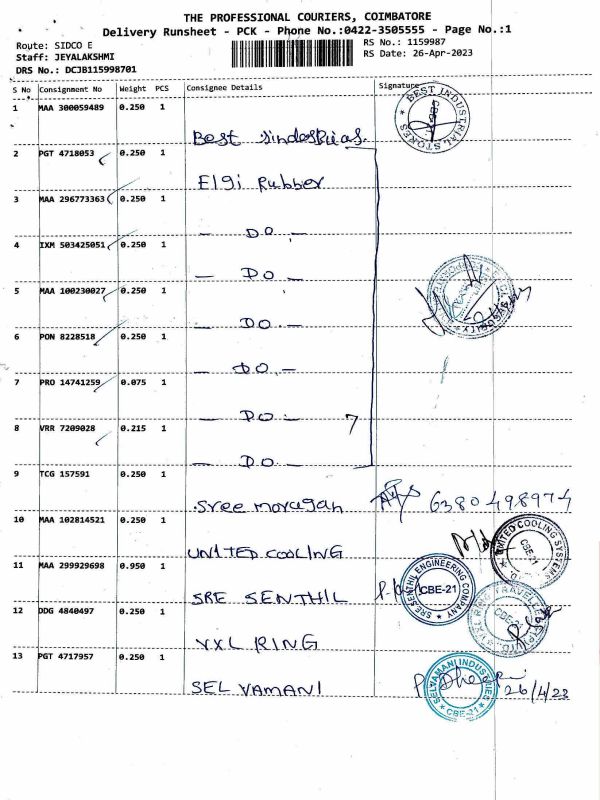 THE PROFESSIONAL COURIERS, COIMBATORE
Delivery Runsheet - PCK - Phone No.:0422-3505555 - Page No.:1
Route: SIDCO E
Staff: JEYALAKSHMI
DRS No.: DCJB115998701
RS No.: 1159987
RS Date: 26-Apr-2023
S No Consignment No Weight PCS Consignee Details Signature
1 MAA 300059489 0.250 1
BEST INDUSTRIAL STORES
Best
2 PGT 4718053 0.250 1
Elgi Rubber
3 MAA 296773363 0.250 1
- DO -
4 IXM 503425051 0.250 1
- DO -
5 MAA 100230027 0.250 1
- DO -
6 PON 8228518 0.250 1
- DO -
7 PRO 14741259 0.075 1
- DO - 7
8 VRR 7209028 0.215 1
- DO -
9 TCG 157591 0.250 1
Sree morugan 6380498974
10 MAA 102814521 0.250 1
UNITED COOLING
UNITED COOLING SYSTEMS
CBE-21
11 MAA 299929698 0.950 1
SRE SENTHIL
SRE SENTHIL ENGINEERING COMPANY
CBE-21
12 DDG 4840497 0.250 1
VXL RING
13 PGT 4717957 0.250 1
SELVAMANI
SELVAMANI INDUSTRIES
CBE-21